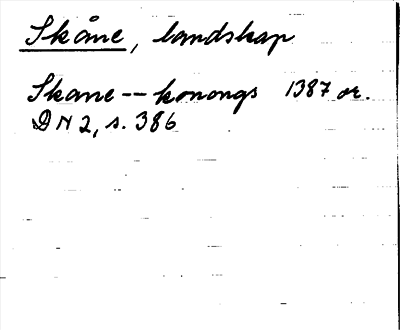 Skåne, landskap
Skane -- konongs 1387 or.
DN 2, s. 386